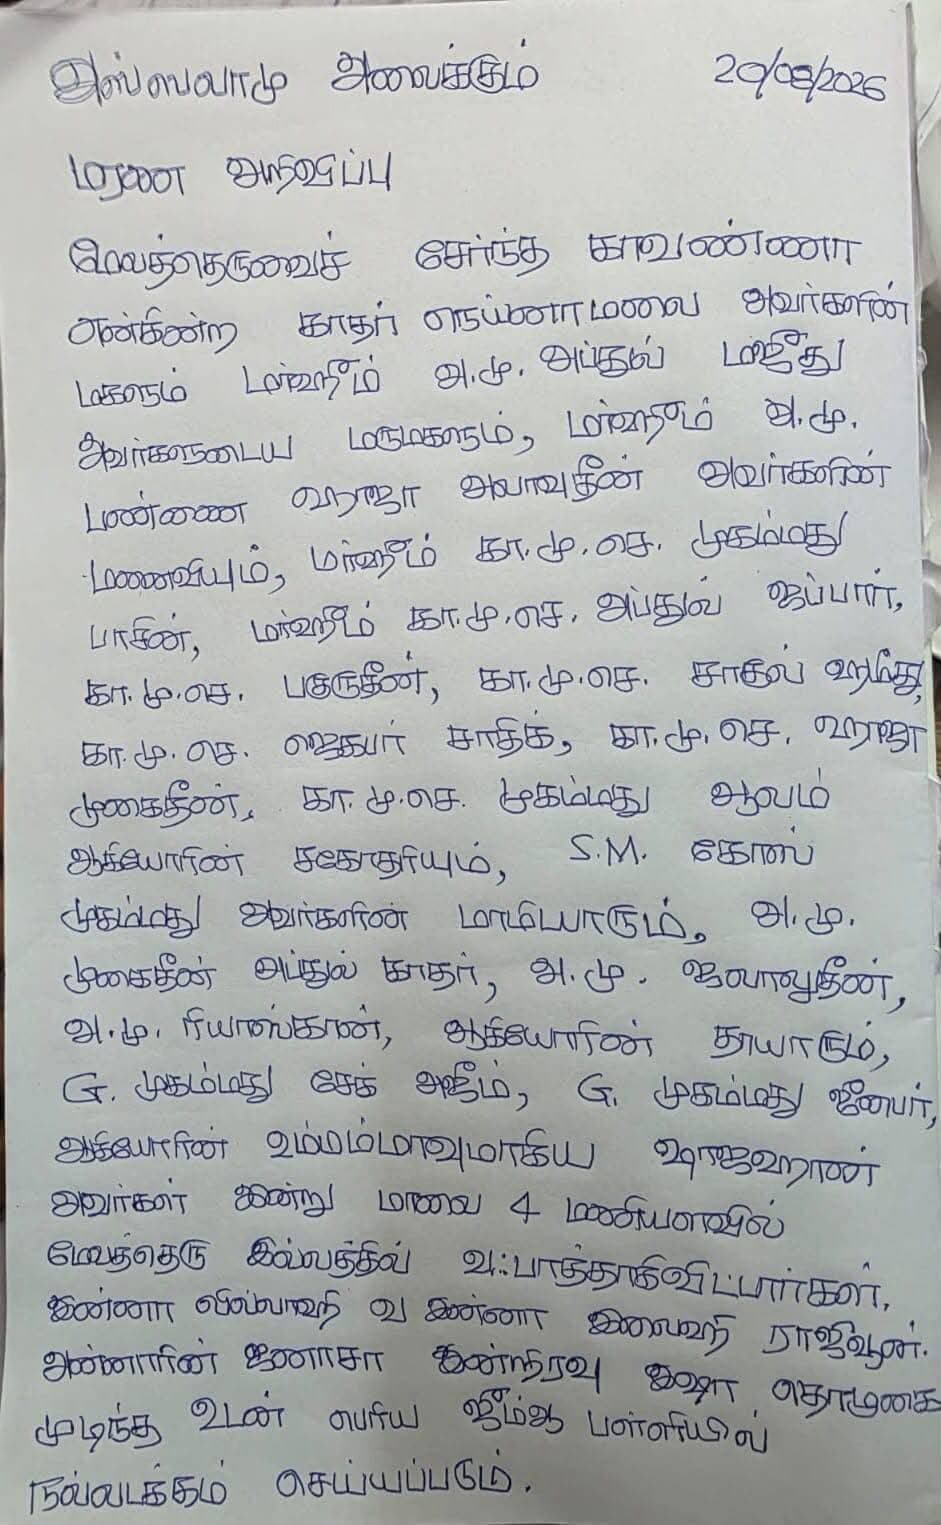 அஸ்ஸலாமு அலைக்கும் 20/08/2026
மரண அறிவிப்பு
மேலத்தெருவைச் சேர்ந்த காவண்ணா
என்கின்ற காதர் நெய்னாமலை அவர்களின்
மகளும் மர்ஹீம் அ.மு. அப்துல் மஜீது
அவர்களுடைய மருமகளும், மர்ஹீம் அ.மு.
மண்ணை ஹாஜா அலாவுதீன் அவர்களின்
மனைவியும், மர்ஹீம் கா.மு.செ. முகம்மது
பாசின், மர்ஹீம் கா.மு.செ. அப்துல் ஜப்பார்,
கா.மு.செ. பகுருதீன், கா.மு.செ. சாகுல் ஹமீது,
கா.மு.செ. ஜெகபர் சாதிக், கா.மு.செ. ஹாஜா
முகைதீன், கா.மு.செ. முகம்மது ஆலம்
ஆகியோரின் சகோதரியும், S.M. கோஸ்
முகம்மது அவர்களின் மாமியாரும், அ.மு.
முகைதீன் அப்துல் காதர், அ.மு. ஜலாலுதீன்,
அ.மு. ரியாஸ்கான், ஆகியோரின் தாயாரும்,
G. முகம்மது சேக் அஜீம், G. முகம்மது ஜீனபர்,
ஆகியோரின் உம்மம்மாவுமாகிய ஷாஜஹான்
அவர்கள் இன்று மாலை 4 மணியளவில்
மேலத்தெரு இல்லத்தில் வஃபாத்தாகிவிட்டார்கள்.
இன்னா லில்லாஹி வ இன்னா இலைஹி ராஜிவூன்.
அன்னாரின் ஜனாசா இன்றிரவு இஷா தொழுகை
முடிந்த உடன் பெரிய ஜீம்ஆ பள்ளியில்
நல்லடக்கம் செய்யப்படும்.